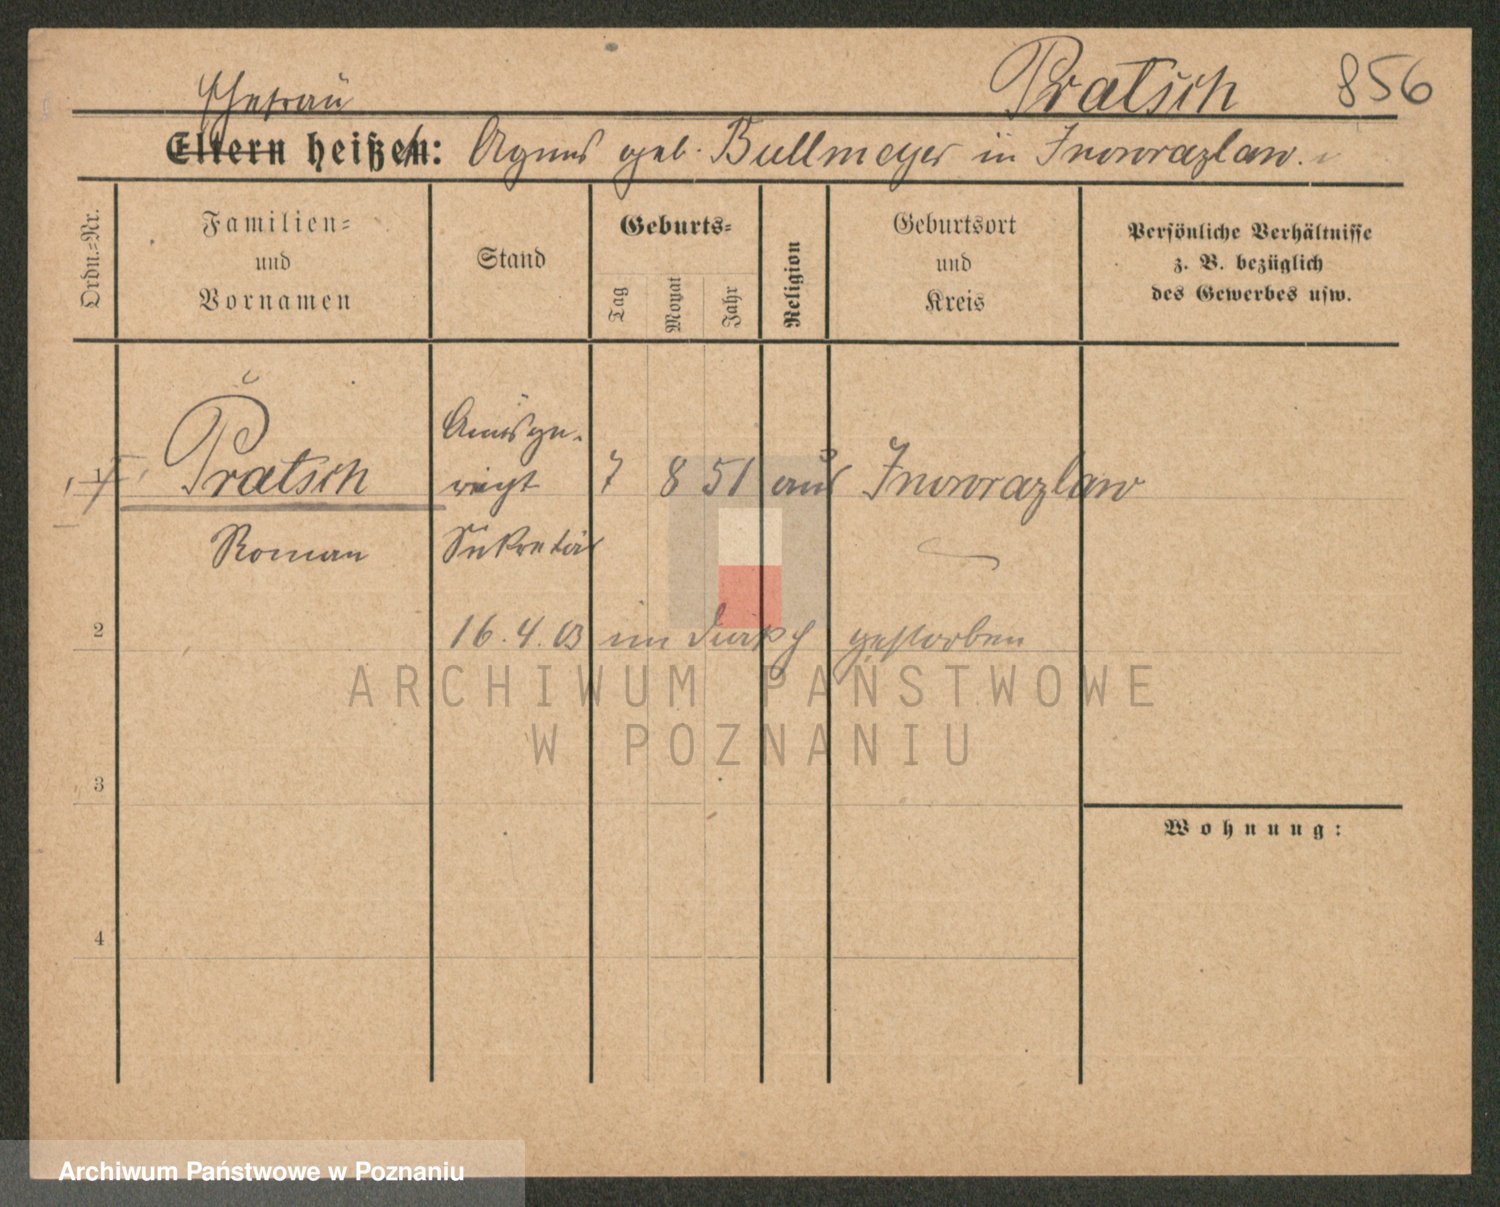 Pratsch 856
Ehefrau
Eltern heißen: Agnes geb. Bullmeyer in Inowrazlaw.
Ordn.=Nr.
Familien=
und
Vornamen
Stand
Geburts=
Tag
Monat
Jahr
Religion
Geburtsort
und
Kreis
Persönliche Verhältnisse
z. B. bezüglich
des Gewerbes usw.
1 Pratsch Amtsge- 7 8 51 Inowrazlaw
Roman Sekretär
2 16. 4. 03 im gestorben
3
4
Wohnung:
ARCHIWUM PAŃSTWOWE
W POZNANIU
Archiwum Państwowe w Poznaniu